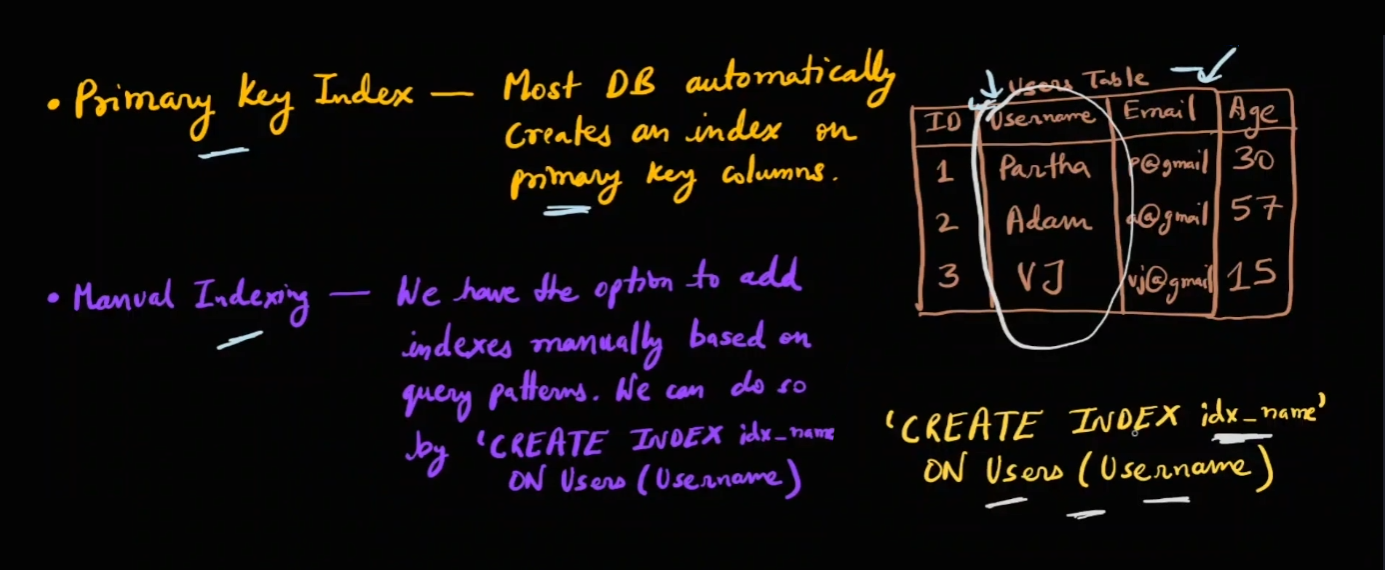 • Primary Key Index — Most DB automatically
creates an index on
primary key columns.
• Manual Indexing — We have the option to add
indexes manually based on
query patterns. We can do so
by 'CREATE INDEX idx_name
ON Users (Username)
Users Table
ID Username Email Age
1 Partha p@gmail 30
2 Adam a@gmail 57
3 VJ vj@gmail 15
'CREATE INDEX idx_name'
ON Users (Username)